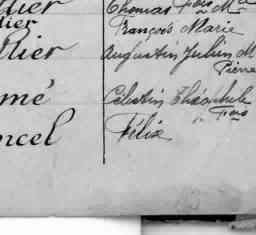 dier Thomas Fçois M
dier François Marie
llier Augustin Julien M
Pierre
mé Célestin Théophile
Fçois
ncel Félix